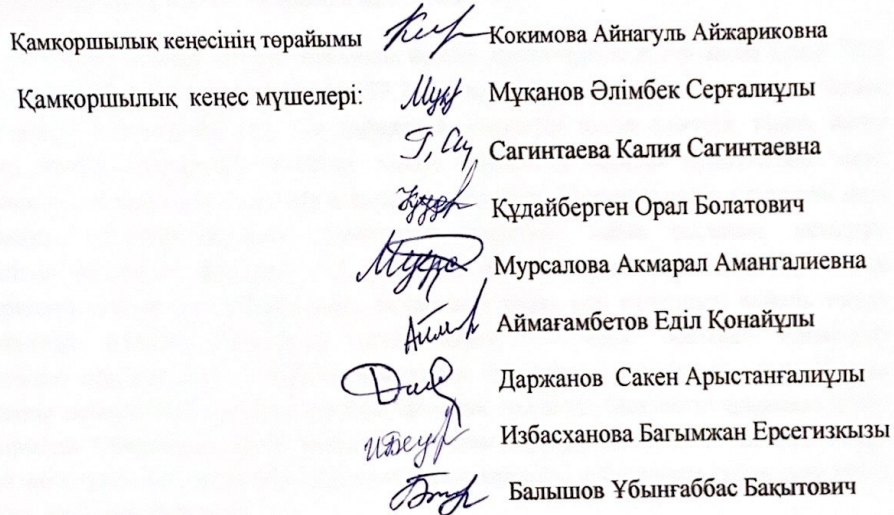 Қамқоршылық кеңесінің төрайымы Кокимова Айнагуль Айжариковна
Қамқоршылық кеңес мүшелері: Мұқанов Әлімбек Серғалиұлы
Сагинтаева Калия Сагинтаевна
Құдайберген Орал Болатович
Мурсалова Акмарал Амангалиевна
Аймағамбетов Еділ Қонайұлы
Даржанов Сакен Арыстанғалиұлы
Избасханова Багымжан Ерсегизкызы
Балышов Ұбынғаббас Бақытович